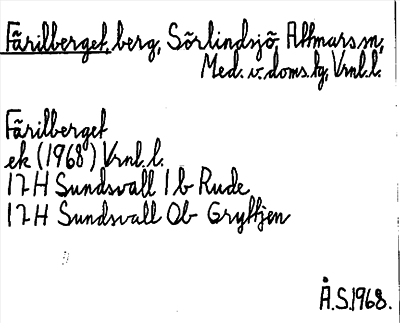 Fãrilberget, berg, Sõrlindsjõ, Attmars sn,
Med. v. doms. tg, Vrnl. l.
Fãrilberget
ek (1968) Vrnl. l.
17 H Sundsvall 1 b Rude
17 H Sundsvall 0b Gryttjen
Å.S.1968.